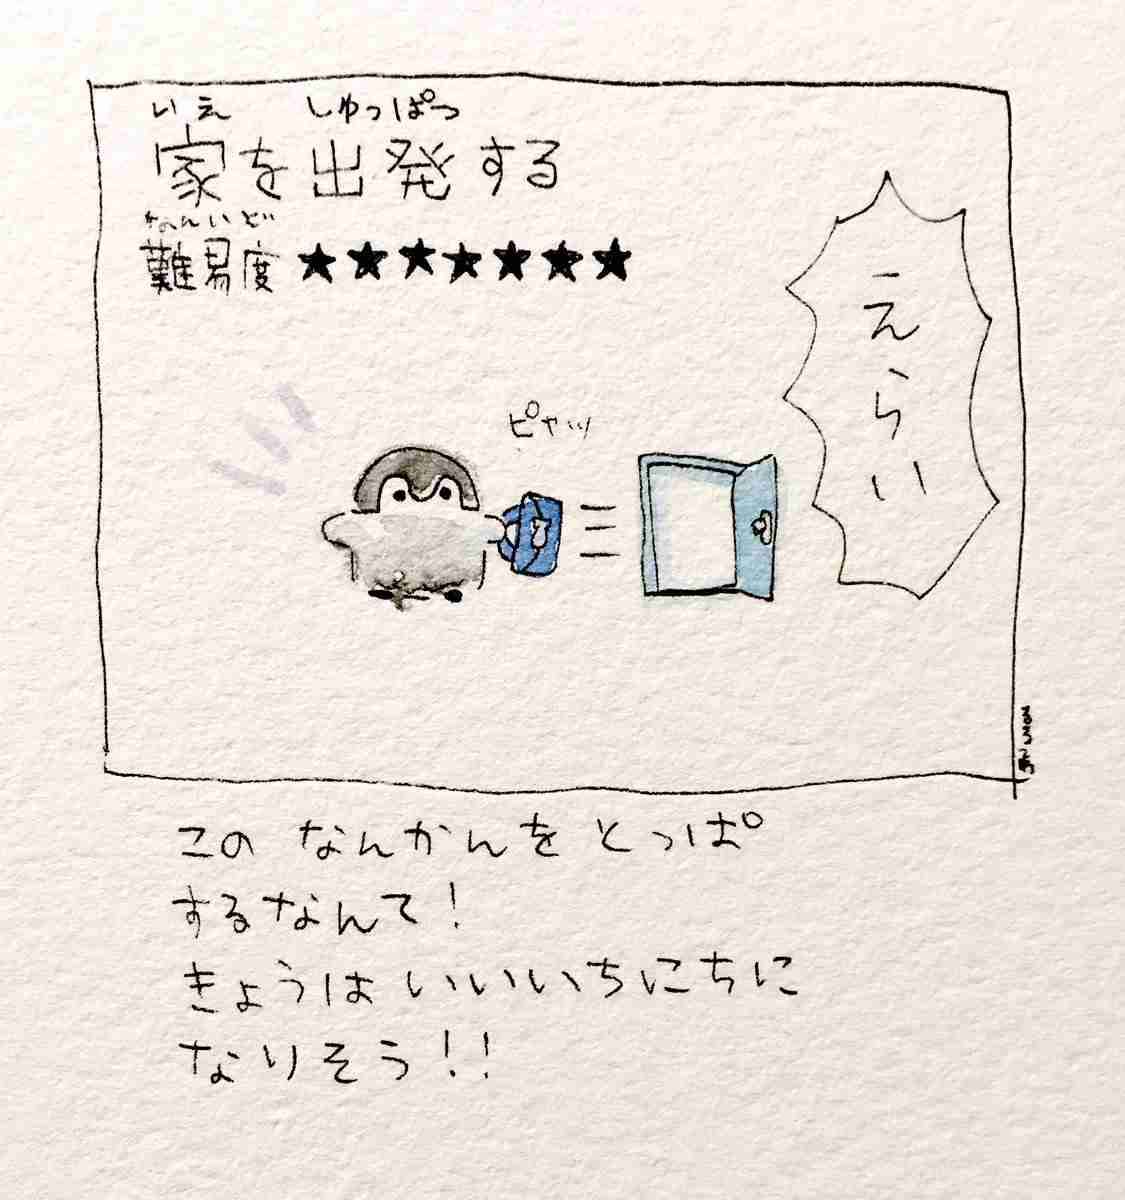 いえ しゅっぱつ
家を出発する
なんいど
難易度 ★★★★★★★
えらい
ピャッ
このなんかんをとっぱ
するなんて!
きょうはいいいちにちに
なりそう!!